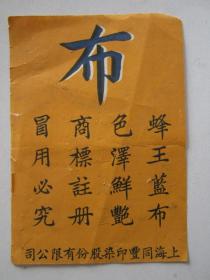 布
蜂王藍布
色澤鮮艷
商標註册
冒用必究
上海同豐印染股份有限公司